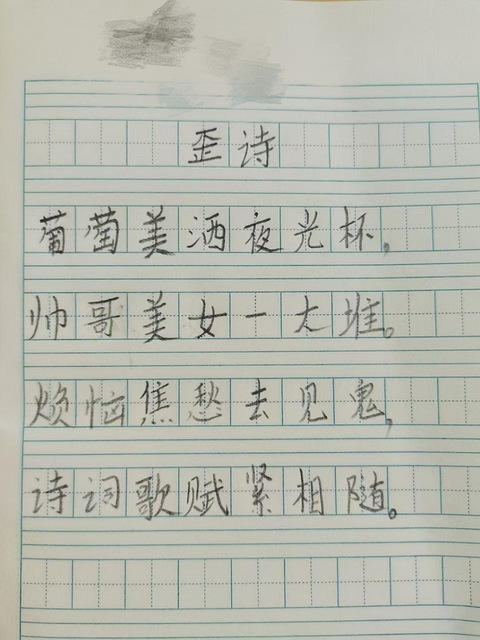 歪诗
葡萄美酒夜光杯，
帅哥美女一大堆。
烦恼焦愁去见鬼，
诗词歌赋紧相随。